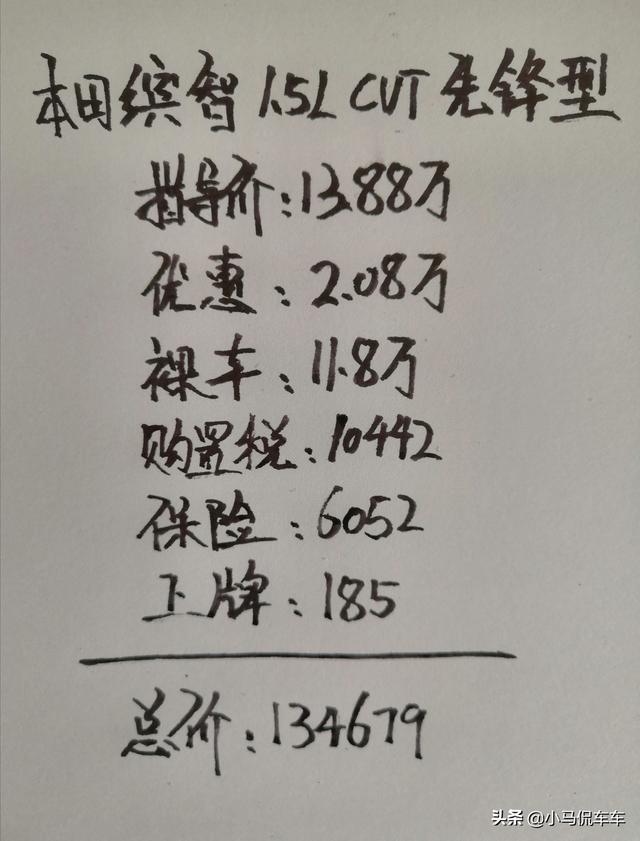 本田缤智1.5L CVT先锋型
指导价:13.88万
优惠:2.08万
裸车:11.8万
购置税:10442
保险:6052
上牌:185
总价:134679
头条 @小马侃车车